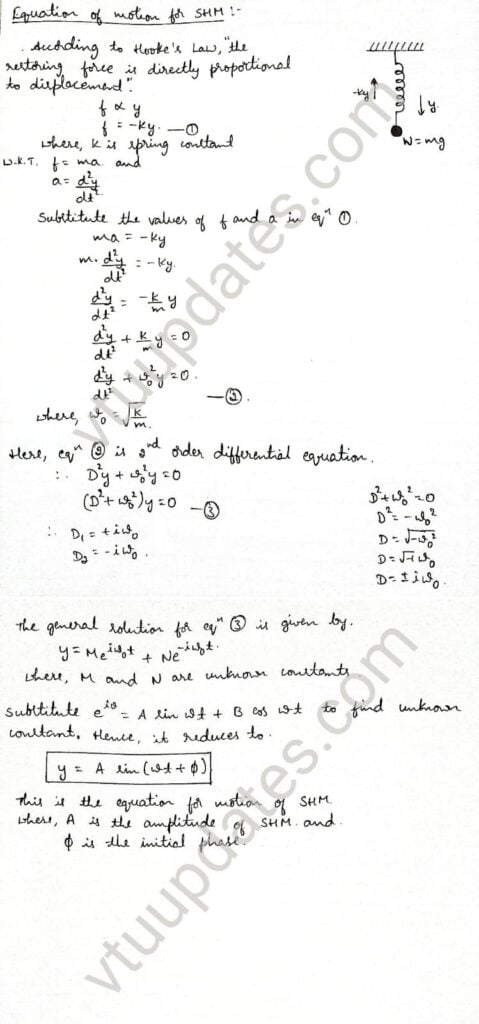 Equation of motion for SHM :-
According to Hooke's Law, "the
restoring force is directly proportional
to displacement".
f ∝ y
f = -ky. —①
where, k is spring constant
W.K.T. f = ma and
a = d²y/dt²
-ky ↑
↓ y
W = mg
Substitute the values of f and a in eqⁿ ①.
ma = -ky
m. d²y/dt² = -ky.
d²y/dt² = -k/m y
d²y/dt² + k/m y = 0
d²y/dt² + ω₀² y = 0. —②.
where, ω₀ = √k/m.
Here, eqⁿ ② is 2nd order differential equation.
∴ D²y + ω₀²y = 0
(D² + ω₀²)y = 0 —③
∴ D₁ = +iω₀
D₂ = -iω₀.
D² + ω₀² = 0
D² = -ω₀²
D = √-ω₀²
D = √-1 ω₀
D = ± iω₀.
The general solution for eqⁿ ③ is given by.
y = Me^iω₀t + Ne^-iω₀t.
where, M and N are unknown constants
Substitute e^iθ = A sin ωt + B cos ωt to find unknown
constant. Hence, it reduces to.
y = A sin(ωt + ϕ)
This is the equation for motion of SHM.
where, A is the amplitude of SHM. and.
ϕ is the initial phase.
vtuupdates.com
vtuupdates.com